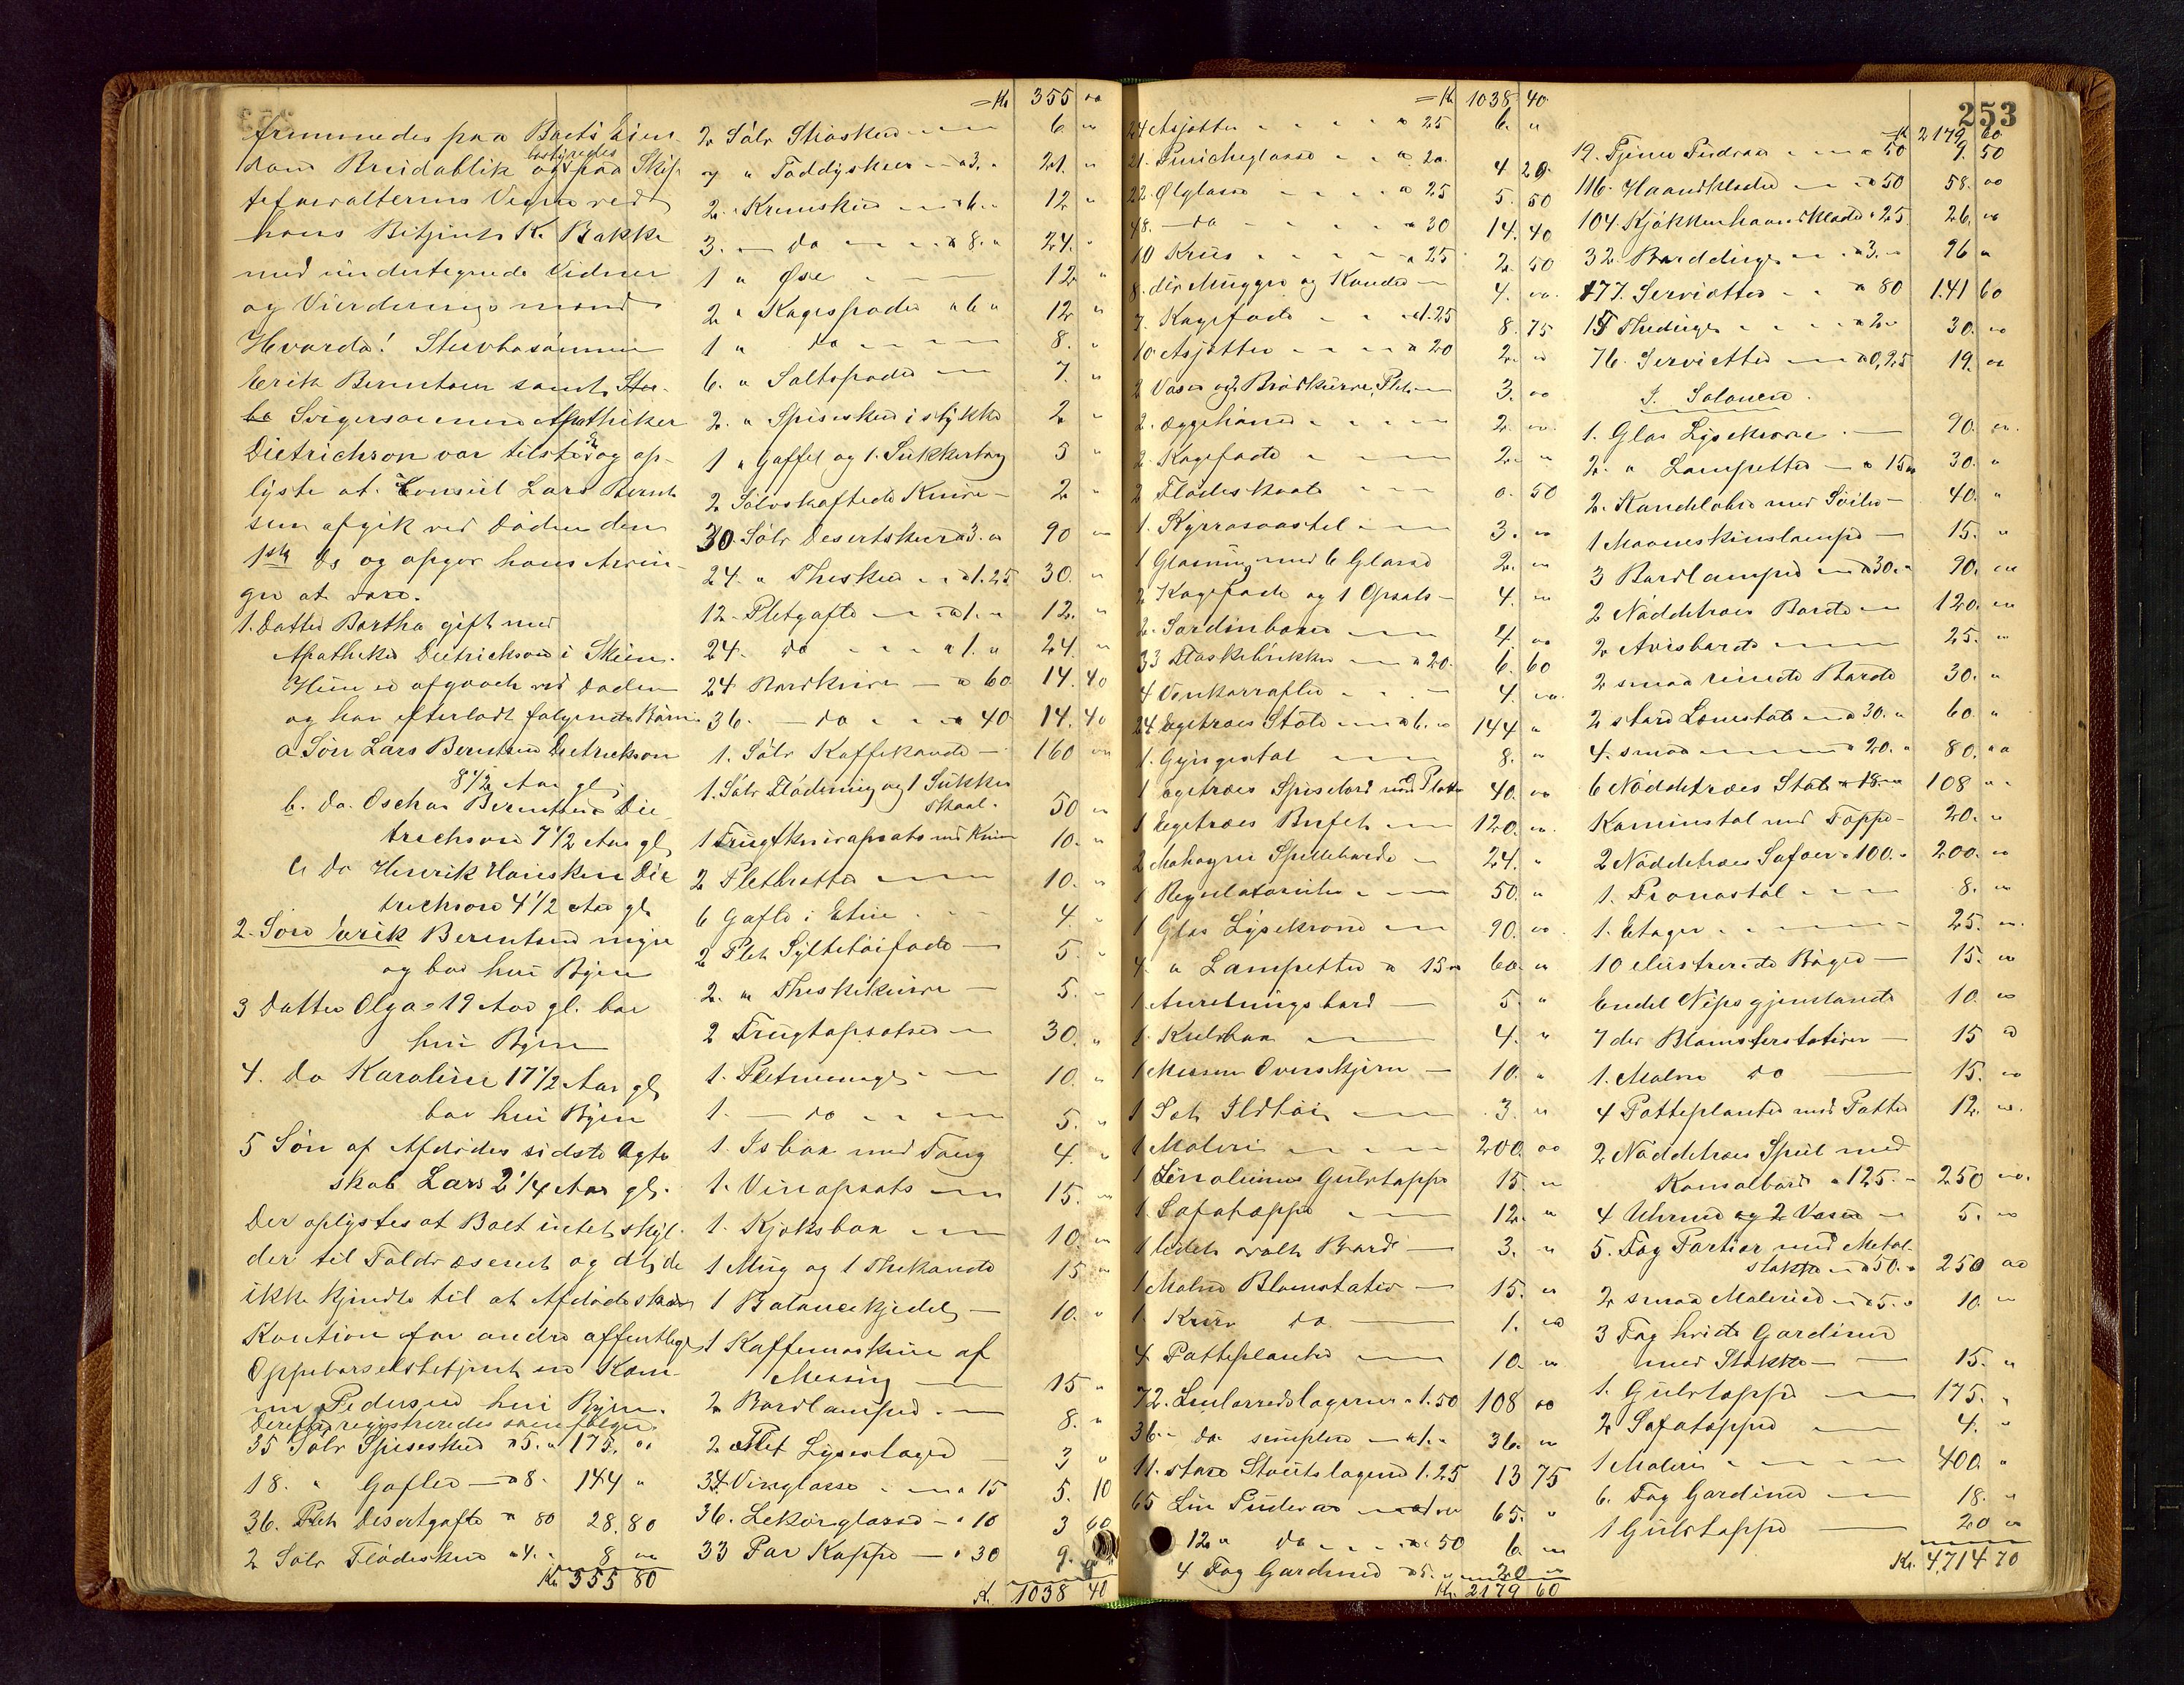 fremmedes paa Boets Eien-
dom Breidablik og bestyredes paa Skif-
teforvalterens Vegne ved
hans Betjent K. Bakke
med undertegnede Vidner
og Vurderingsmænd
Hvorda! Stervbosönnen
Erik Berentsen samt Ster-
bo Svigersönnen Apotheker
Dietrichson var tilstede og op-
lyste at Consul Lars Berent-
sen afgik ved Döden den
1ste Ds og opgav hans Arvin-
ger at være.
1. Datter Bertha gift med
Apotheker Dietrichson i Skien.
Hun er afgaaet ved Döden
og har efterladt fölgende Börn
a Sön Lars Berentsen Dietrichson
8 1/2 Aar gl
b. do. Oschar Berentsen Die-
trichson 7 1/2 Aar gl
c do Henrik Hansken Die
trichson 4 1/2 Aar gl
2. Sön Erik Berentsen myn
og bor her i Byen
3 Datter Olga 19 Aar gl. bor
her i Byen
4. do Karoline 17 1/2 Aar gl
bor her i Byen
5 Sön af Afdödes sidste Ægte
skab Lars 2 1/4 Aar gl.
Der oplystes at Boet intet skyl-
der til Toldvæsenet og at de
ikke kjendte til at Afdöde skrev
Kaution for andre offentlige
Oppebörselsbetjent en Kom-
Pedersen her i Byen.
Derefter registreredes som fölger
35 Sölv Spiseskeer a 5. " 175. oo
18. " Gafler — a 8. 144 "
36. Plet Desertgafle a 80 28. 80
2 Sölv Flödeskeer a 4. " 8 oo
Kr 355 80
= Kr 355 oo
2 Sölv Ströskeer 6. "
7 " Toddyskeer — a 3. " 21. "
2. " Kremskeer a 6. " 12 "
3. — do a 8. " 24. "
1 " Öse 12 "
2 " Kagespader a 6 " 12 "
1 " do 8. "
6. " Saltspader 7. "
2. " Spiseskeer i stykke 2 "
1 " Gaffel og 1. Sukkertang 5 "
2 Sölvskaftede Knive — 2 "
30. Sölv Desertskeer a 3. " 90 "
24. " Theskeer a 1.25 30. "
12. Pletgafle a 1. " 12. "
24. do a 1. " 24. "
24 Bordknive — a 60 14. 40
36. — do a 40 14. 40
1. Sölv Kaffekande — 160 "
1. Sölv Flödemug og 1 Sukker
skaal. 50 "
1 Frugtknivopsats med Knive 10. "
2 Pletbretter 10. "
6 Gafle i Etui 4. "
2 Plet Syltetöifade — 5. "
2. " Theskekurve — 5. "
2 Frugtopsatser 30. "
1. Pletmenage 10. "
1. — do 5. "
1. Isbox med Tang 4. "
1. Vinopsats 15. "
1. Kjeksbox 10. "
1 Mug og 1 Thekande 15 "
1 Balancekjedel — 10. "
1 Kaffemaskine af
Messing — 15 "
2 Bordlamper. 8. "
2 Plet Lysestager — 3 "
34. Vinglasse a 15 5. 10
36. Lekörglasse — a 10 3 60
33 Par Kopper — a 30 9.
Kr. 1038 40
= Kr 1038 40
24 Asjetter a 25 6. "
21. Puncheglasse a 20. 4 20
22. Ölglasse a 25 5. 50
48. — do a 30 14. 40
10 Krus a 25 2. 50
8. div Mugger og Kander 4. oo
7. Kagefade a 1.25 8. 75
10 Asjetter a 20 2. oo
2 Vaser og 2 Brödkurve, Plet 3. oo
2. Æggehöner 2. oo
2. Kagefade 2. "
2 Flödeskaale 0. 50
1. Kyrrasaastel 3. oo
1 Glasmug med 6 Glasse 2. "
2 Kagefade og 1 Opsats — 4. "
2. Sardinboxer 4. oo
33 Flaskebrikker a 20. 6. 60
4 Vinkarafler 4. oo
24 Egetræes Stole a 6. " 144 "
1. Gyngestol 8. "
1 Egetræes Spisebord med Plater 40. oo
1 Egetræes Bufet 120. "
2 Mahogni Spilleborde — 24. "
1 Regulatoruhr 50. "
1 Glas Lysekrone 90. oo
4. " Lampetter a 15 " 60. "
1 Anretningsbord — 5. "
1. Kulebox 4. "
1 Messin Ovnskjerm — 10. "
1 Set Ildtöi 3. "
1 Maleri 200. oo
1 Linoleums Gulvteppe 15. "
1 Sofateppe 12. "
1 lidet ovalt Bord — 3. "
1 Malm Blomstativ — 15. "
1. Kurv do — 1. oo
4 Potteplanter 10. "
72. Linlærredslagener a 1.50 108 oo
36. — do simplere — a 1. " 36. "
11. store Stoutslagener 1.25 13 75
65 Lin Pudevar a 1 oo 65. "
12 " do a 50 6. "
4 Fag Gardiner a 5. " 20 "
Kr. 2179 60
253
Kr 2179 60
19. Fjerne Pudevar a 50 9. 50
116. Haandklæder a 50 58. oo
104. Kjökkenhaandklæder a 25 26. oo
32. Borddug a 3. " 96 "
177. Servietter a 80 141 60
15 Theduge a 2 " 30. oo
76. Servietter a 0,25 19. oo
I. Salonen.
1. Glas Lysekrone. — 90. oo.
2. " Lampetter — a 15 " 30. "
2. Kandelabre med Söiler — 40. "
1 Maaneskinslampe — 15. "
3 Bordlamper a 30. " 90. "
2 Nöddetræes Borde 120. "
2 Avisborde 25. "
2 smaa runde Borde 30. "
2 store Lænestole a 30. " 60. "
4. smaa a 20. " 80. oo
6 Nöddetræes Stole a 18. " 108 "
Kaminstol med Teppe — 20. "
2 Nöddetræes Sofaer a 100. " 200. oo
1. Pianostol 8. "
1. Etager 25. "
10 elustrerede Böger — 15. "
Endel Nips gjenstande 10. oo
7 div Blomsterstativer — 15 oo
1. Malm do 15. oo
4 Potteplanter med Potter 12. oo.
2 Nöddetræes Speil med
Konsolbord a 125. — 250 oo.
4 Uhrne og 2 Vaser 5. "
5. Fag Portier med Metal-
stokke a 50. " 250 oo
2 smaa Malerier a 5. " 10. "
3 Fag hvide Gardiner
med Stokke — 15. "
1. Gulvteppe 175. "
2 Sofatepper 4. "
1 Maleri 400. "
6. Fag Gardiner 18. "
1 Gulvteppe 20 "
Kr. 4,714 70